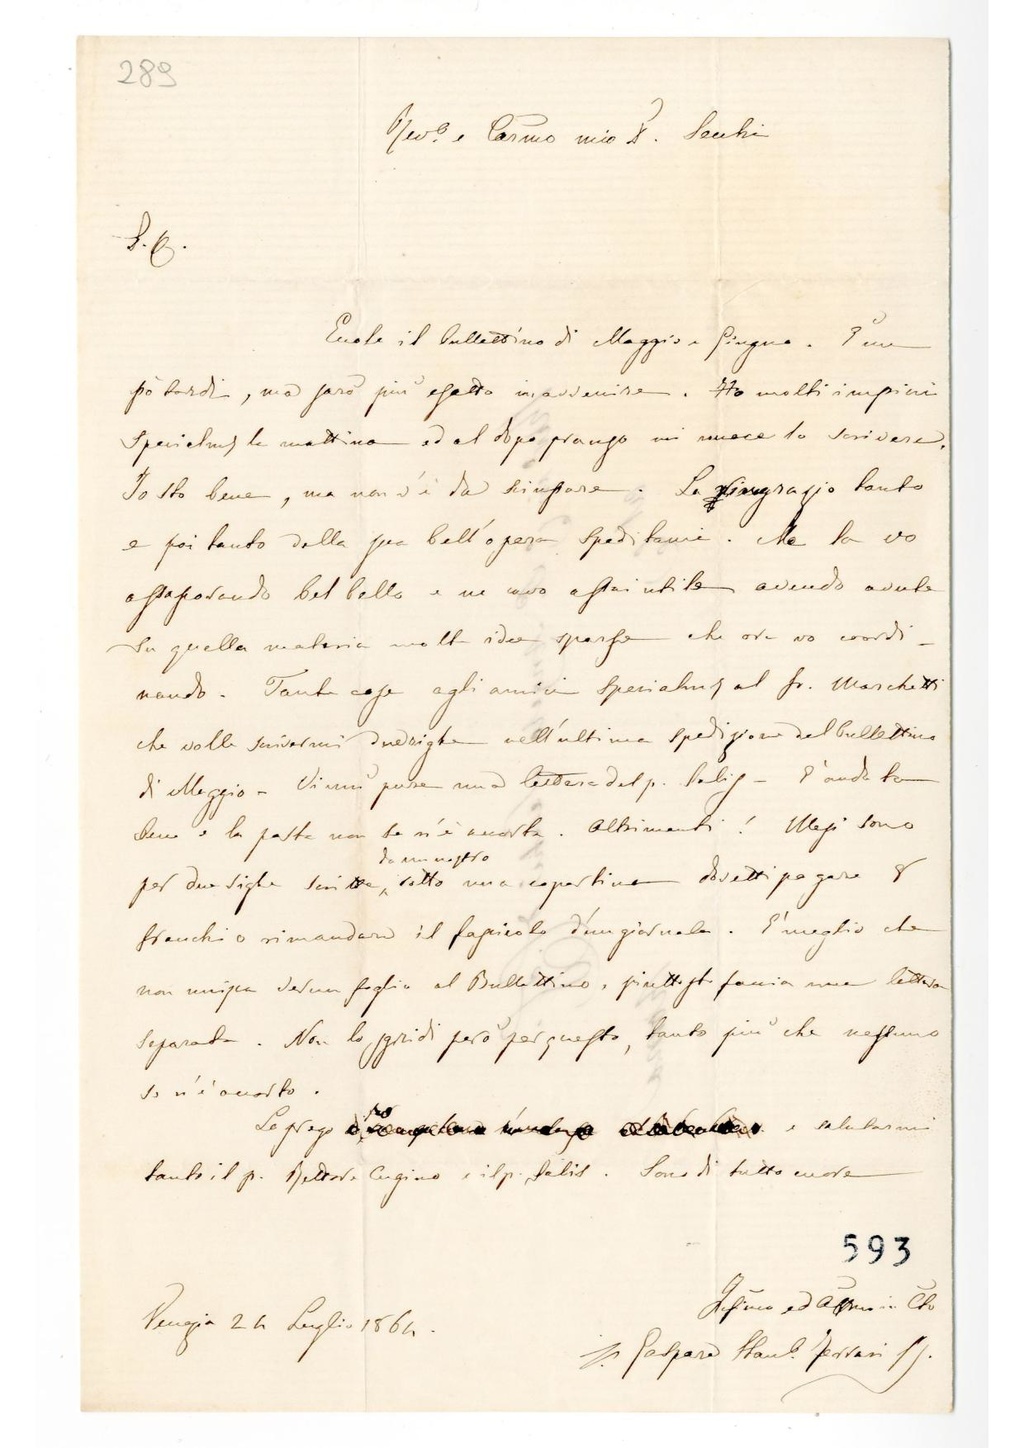 289
Rev.º e Carmo mio P. Secchi
P. C.
Eccole il bullettino di Maggio e Giugno. È un
pò tardi, ma sarò più esatto in avvenire. Ho molti impicci
specialm. la mattina ed al dopo pranzo mi nuoce lo scrivere.
Io sto bene, ma non v'è da scialare. La ringrazio tanto
e poi tanto della sua bell'opera speditami. Me la vo
assaporando bel bello e ne cavo assai utile avendo avute
su quella materia molte idee sparse che ora vo coordi-
nando. Tante cose agli amici specialm. al fr. Marchetti
che volle scrivermi due righe nell'ultima spedizione del bullettino
di Maggio - Vi unì pure una lettera del p. Salis - È andata
bene e la posta non se n'è accorta. Altrimenti! Mesi sono
per due righe scritte, sotto una copertina dovetti pagare 8
da un nostro
franchi o rimandare il fascicolo d'un giornale. È meglio che
non unisca verun foglio al Bullettino, piuttosto faccia una lettera
separata. Non lo sgridi però per questo, tanto più che nessuno
se n'è accorto.
La prego e salutarmi
tanto il p. Rettore Cugino e il p. Salis. Sono di tutto cuore
593
Venezia 24 Luglio 1864.
Infimo ed Affmo in Cto
p. Gaspare Stan. Ferrari SJ.